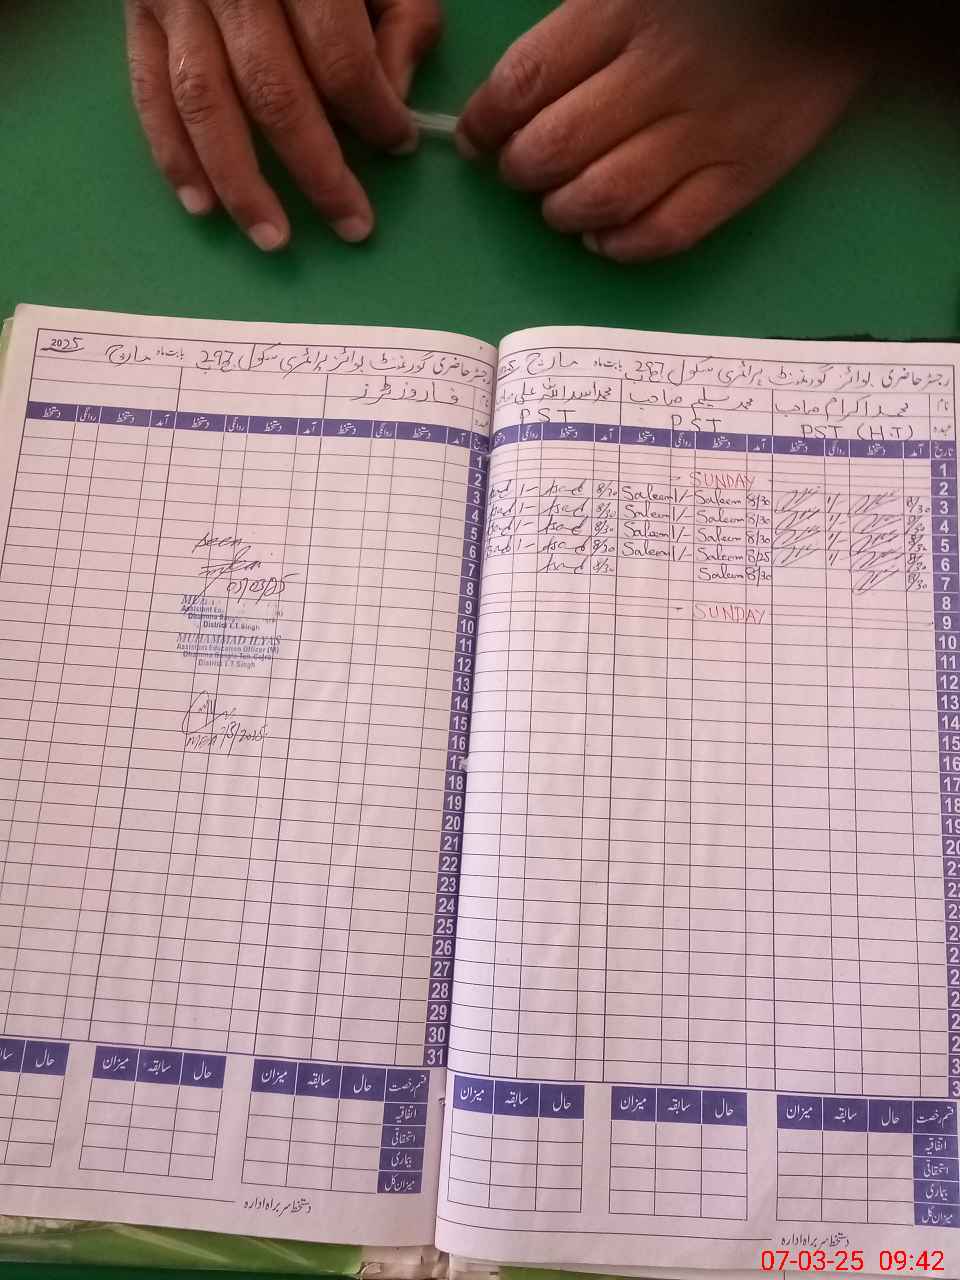 رجسٹر حاضری گورنمنٹ بوائز پرائمری سکول 297 ج ب بابت ماہ مارچ 2025
نام
فاروز ٹرز
تاریخ آمد دستخط روانگی دستخط آمد دستخط روانگی دستخط آمد دستخط روانگی دستخط
1
2
3
4
5
6
7
8
9
10
11
12
13
14
15
16
17
18
19
20
21
22
23
24
25
26
27
28
29
30
31
Seen
05/03/25
Assistant
Dhamma Bangla
District T.T.Singh
MUHAMMAD ILYAS
Assistant Education Officer (M)
Dhamma Bangla Teh. Gojra
District T.T.Singh
MEA 7/3/2025
قسم رخصت حال سابقہ میزان حال سابقہ میزان حال
اتفاقیہ
استحقاقی
بیماری
میزان کل
دستخط سربراہ ادارہ
رجسٹر حاضری بوائز گورنمنٹ پرائمری سکول 297 ج ب بابت ماہ مارچ
نام محمد اکرام صاحب محمد سلیم صاحب محمد اسد اللہ علی
عہدہ PST (H.T) PST PST
تاریخ آمد دستخط روانگی دستخط آمد دستخط روانگی دستخط آمد دستخط روانگی دستخط
1
2 - SUNDAY -
3 8/30 1/- 8/30 Saleem 1/- Saleem 8/30 Asad 1-
4 8/30 1/- 8/30 Saleem 1/- Saleem 8/30 Asad 1-
5 8/30 1/- 8/30 Saleem 1/- Saleem 8/30 Asad 1-
6 8/30 1/- 8/25 Saleem 1/- Saleem 8/30 Asad 1-
7 8/30 8/30 Saleem 8/30 Asad
8
9 - SUNDAY -
10
11
12
13
14
15
16
17
18
19
قسم رخصت حال سابقہ میزان حال سابقہ میزان حال سابقہ میزان
اتفاقیہ
استحقاقی
بیماری
میزان کل
دستخط سربراہ ادارہ
07-03-25 09:42